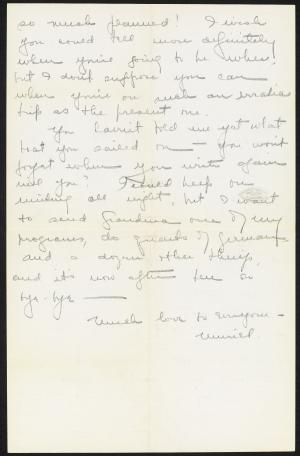 so much planned! I wish
you could tell more definitely
when you're going to be where
but I don't suppose you can
when you're on such an erratic
trip as the present one.
You haven't told me yet what
boat you sailed on — you won't
forget when you write again
will you? I could keep on
writing all night, but I want
to send Grandma one of my
programs, do quarts of German
and a dozen other things,
and it's now after ten so
bye-bye —
Much love to everyone —
Muriel.